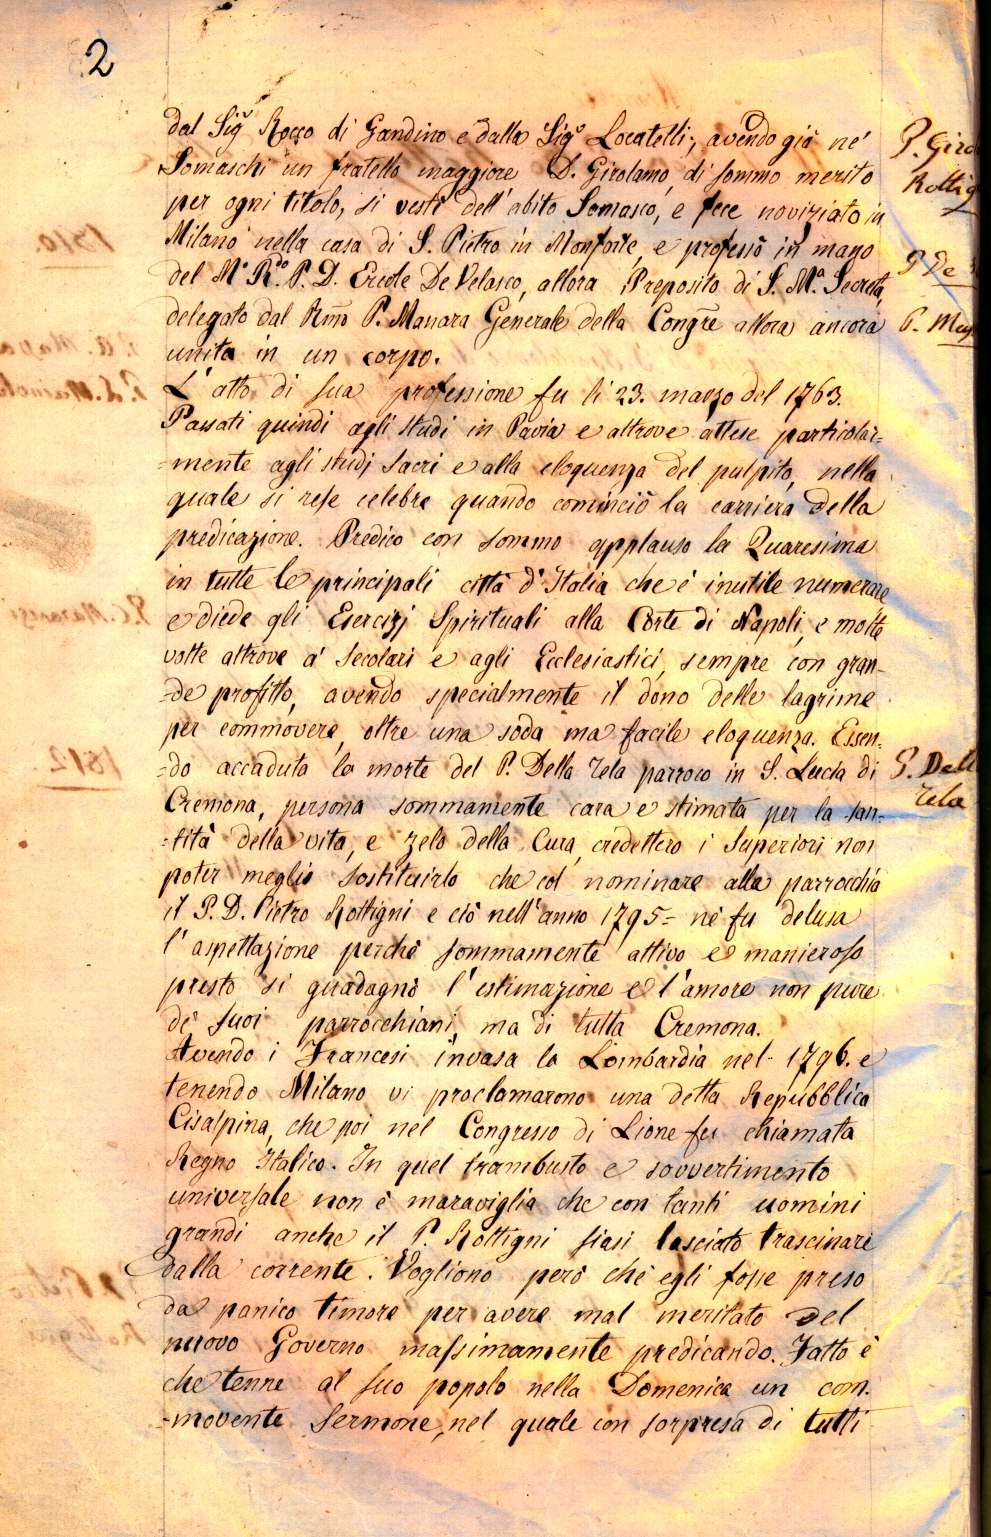 2
dal Sigr Rocco di Gandino e dalla Sigr Locatelli, avendo già ne'
Somaschi un fratello maggiore D. Girolamo, di sommo merito
per ogni titolo, si vestì dell' abito Somasco, e fece noviziato in
Milano nella casa di S. Pietro in Monforte, e professò in mano
del M. Rdo. P. D. Ercole De Velasco, allora Preposito di S. Ma. Secreta,
delegato dal Rmo P. Manara Generale della Congne allora ancora
unita in un corpo.
L' atto di sua professione fu li 23. marzo del 1763.
Passati quindi agli studi in Pavia e altrove attese particolar=
=mente agli studj sacri e alla eloquenza del pulpito, nella
quale si rese celebre quando cominciò la carriera della
predicazione. Predicò con sommo applauso la Quaresima
in tutte le principali città d'Italia che è inutile numerare
e diede gli Esercizj Spirituali alla Corte di Napoli, e molte
volte altrove a' secolari e agli Ecclesiastici, sempre con gran=
=de profitto, avendo specialmente il dono delle lagrime
per commovere, oltre una soda ma facile eloquenza. Essen=
=do accaduta la morte del P. Della Tela parroco in S. Lucia di
Cremona, persona sommamente cara e stimata per la san=
=tità della vita, e zelo della Cura, credettero i Superiori non
poter meglio sostituirlo che col nominare alla parrocchia
il P. D. Pietro Rottigni e ciò nell'anno 1795= nè fu delusa
l' aspettazione perchè sommamente attivo e manieroso
presto si guadagnò l'estimazione e l'amore non pure
de' suoi parrocchiani, ma di tutta Cremona.
Avendo i Francesi invasa la Lombardia nel 1796. e
tenendo Milano vi proclamarono una detta Repubblica
Cisalpina, che poi nel Congresso di Lione fu chiamata
Regno Italico. In quel trambusto e sovvertimento
universale non è maraviglia che con tanti uomini
grandi anche il P. Rottigni siasi lasciato trascinare
dalla corrente. Vogliono però che egli fosse preso
da panico timore per avere mal meritato del
nuovo Governo massimamente predicando. Fatto è
che tenne al suo popolo nella Domenica un com=
=movente Sermone, nel quale con sorpresa di tutti
P. Giro
Rottig
P. De
P. Ma
P. Dell
Tela